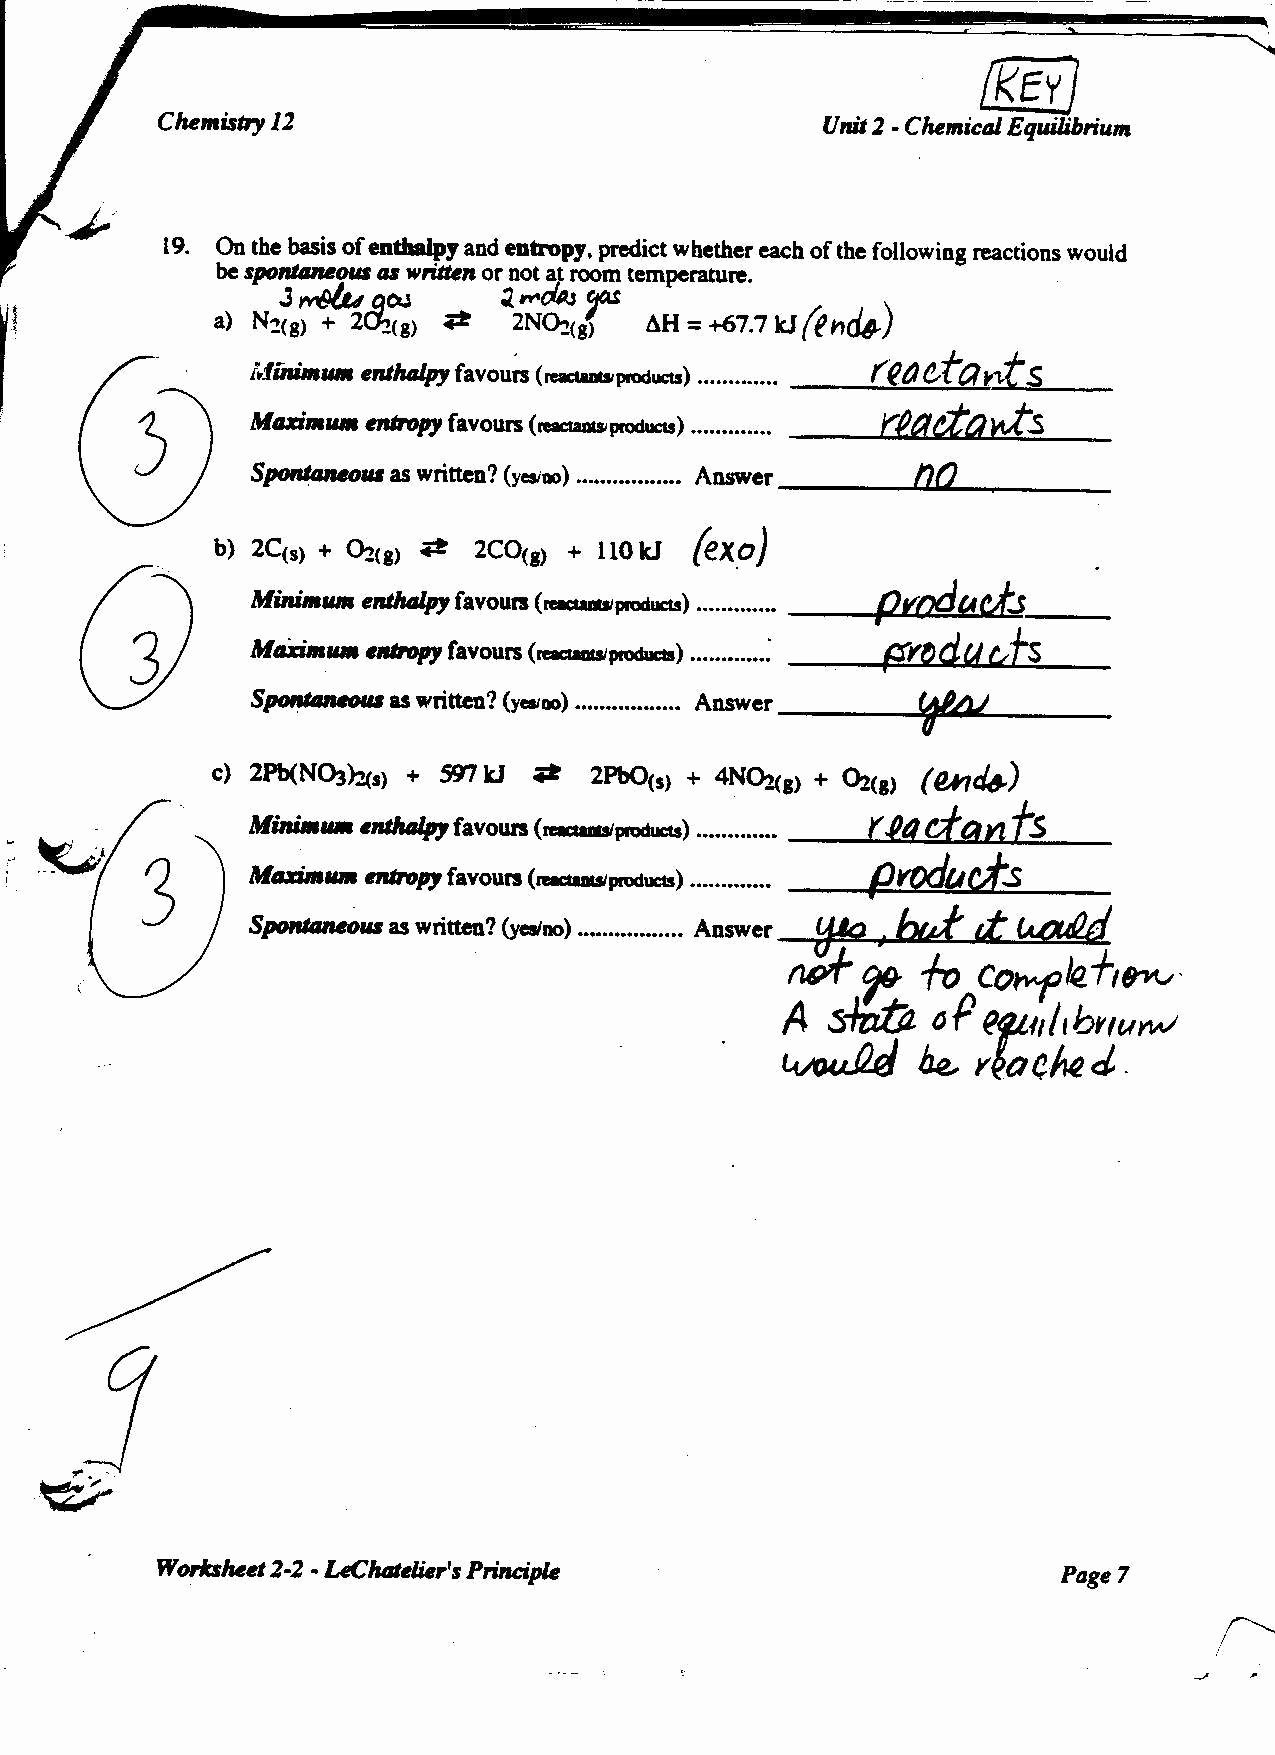 KEY
Chemistry 12
Unit 2 - Chemical Equilibrium
19. On the basis of enthalpy and entropy, predict whether each of the following reactions would
be spontaneous as written or not at room temperature.
3 moles gas 2 moles gas
a) N2(g) + 2O2(g) ⇄ 2NO2(g) ΔH = +67.7 kJ (endo)
Minimum enthalpy favours (reactants/products) ............. reactants
3
Maximum entropy favours (reactants/products) ............. reactants
Spontaneous as written? (yes/no) ................. Answer no
b) 2C(s) + O2(g) ⇄ 2CO(g) + 110 kJ (exo)
Minimum enthalpy favours (reactants/products) ............. products
3
Maximum entropy favours (reactants/products) ............. products
Spontaneous as written? (yes/no) ................. Answer yes
c) 2Pb(NO3)2(s) + 597 kJ ⇄ 2PbO(s) + 4NO2(g) + O2(g) (endo)
Minimum enthalpy favours (reactants/products) ............. reactants
3
Maximum entropy favours (reactants/products) ............. products
Spontaneous as written? (yes/no) ................. Answer yes, but it would
not go to completion.
A state of equilibrium
would be reached.
9
Worksheet 2-2 - LeChatelier's Principle
Page 7